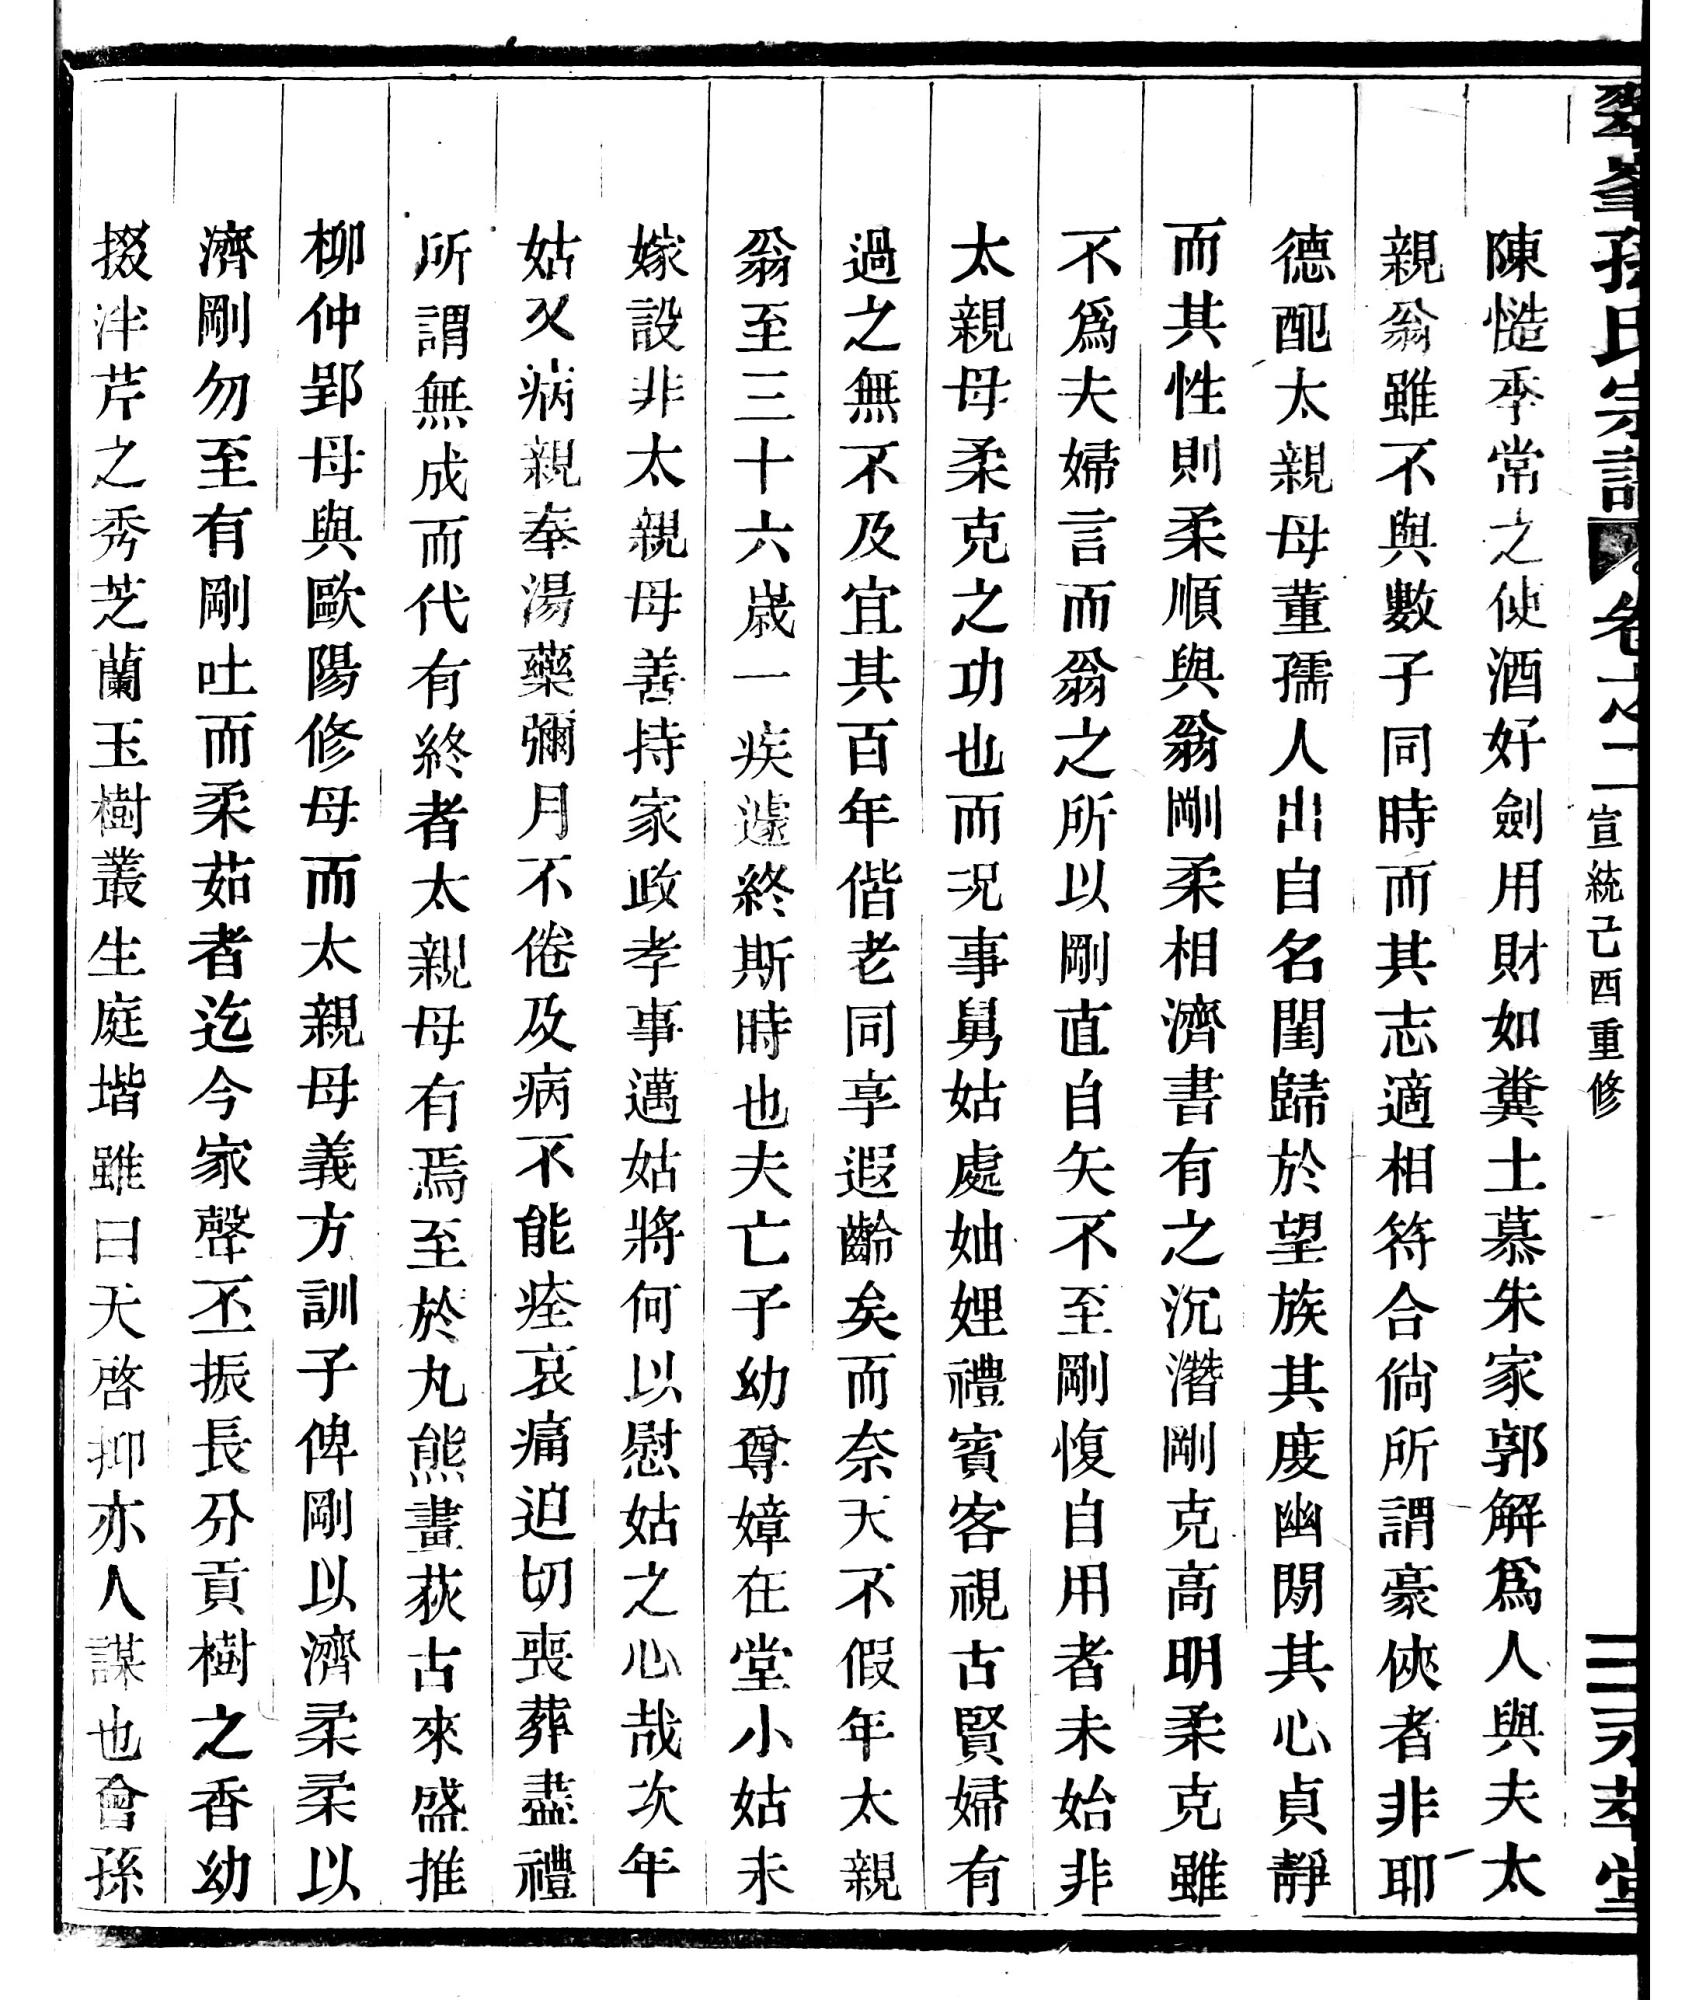 翠峯孫氏宗譜 卷之二 宣統己酉重修 三 永萃堂
陳慥季常之使酒好劍用財如糞土慕朱家郭解爲人與夫太
親翁雖不與數子同時而其志適相符合倘所謂豪俠者非耶
德配太親母董孺人出自名閨歸於望族其度幽閒其心貞靜
而其性則柔順與翁剛柔相濟書有之沉潛剛克高明柔克雖
不爲夫婦言而翁之所以剛直自矢不至剛愎自用者未始非
太親母柔克之功也而況事舅姑處妯娌禮賓客視古賢婦有
過之無不及宜其百年偕老同享遐齡矣而奈天不假年太親
翁至三十六歲一疾遽終斯時也夫亡子幼尊嫜在堂小姑未
嫁設非太親母善持家政孝事邁姑將何以慰姑之心哉次年
姑又病親奉湯藥彌月不倦及病不能痊哀痛迫切喪葬盡禮
所謂無成而代有終者太親母有焉至於丸熊畫荻古來盛推
柳仲郢母與歐陽修母而太親母義方訓子俾剛以濟柔柔以
濟剛勿至有剛吐而柔茹者迄今家聲丕振長分貢樹之香幼
掇泮芹之秀芝蘭玉樹叢生庭堦雖曰天啓抑亦人謀也會孫